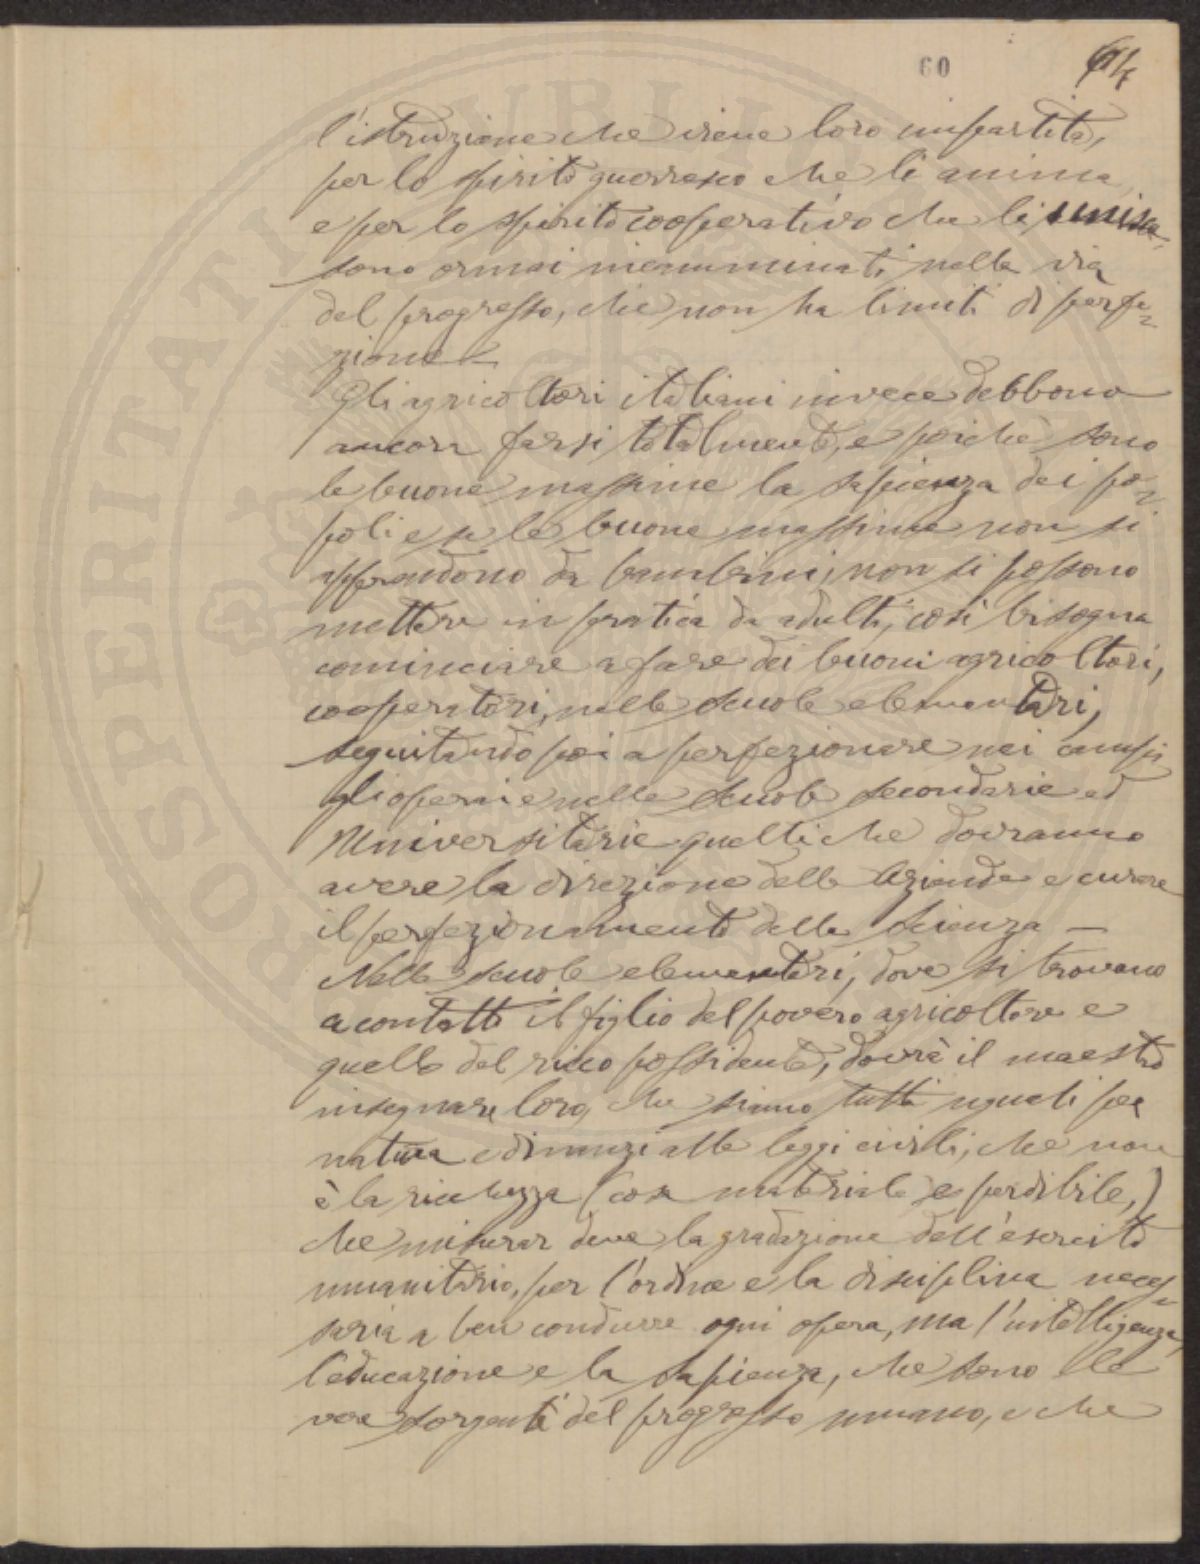 60 64
l'istruzione che viene loro impartita,
per lo spirito guerresco che li anima
e per lo spirito cooperativo che li unisce,
sono ormai incamminati nella via
del progresso, che non ha limiti di perfe-
zione —
Gli agricoltori italiani invece debbono
ancora farsi totalmente, e poichè sono
le buone massime la sapienza dei po-
poli e se le buone massime non si
apprendono da bambini, non si possono
mettere in pratica da adulti, così bisogna
cominciare a fare dei buoni agricoltori,
cooperatori, nelle scuole elementari,
seguitando poi a perfezionare nei campi
gli operai e nelle scuole secondarie ed
Universitarie quelli che dovranno
avere la direzione delle Aziende e curare
il perfezionamento della scienza —
Nelle scuole elementari, dove si trovano
a contatto il figlio del povero agricoltore e
quello del ricco possidente, dovrà il maestro
insegnare loro, che siamo tutti uguali per
natura e dinnanzi alle leggi civili, che non
è la ricchezza (cosa materiale e perdibile,)
che misurar deve la gradazione dell'esercito
umanitario, per l'ordine e la disciplina neces-
saria a ben condurre ogni opera, ma l'intelligenza,
l'educazione e la sapienza, che sono le
vere sorgenti del progresso umano, e che
PROSPERITATI PUBLICAE